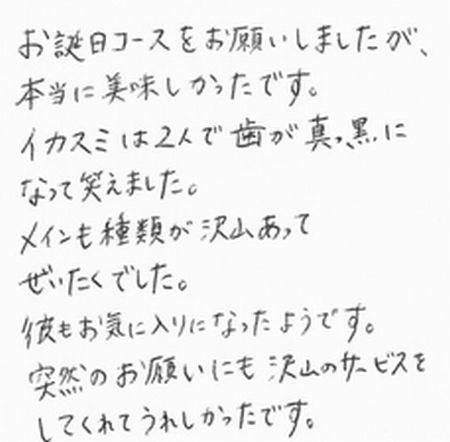 お誕日コースをお願いしましたが、
本当に美味しかったです。
イカスミは2人で歯が真っ黒に
なって笑えました。
メインも種類が沢山あって
ぜいたくでした。
彼もお気に入りになったようです。
突然のお願いにも沢山のサービスを
してくれてうれしかったです。